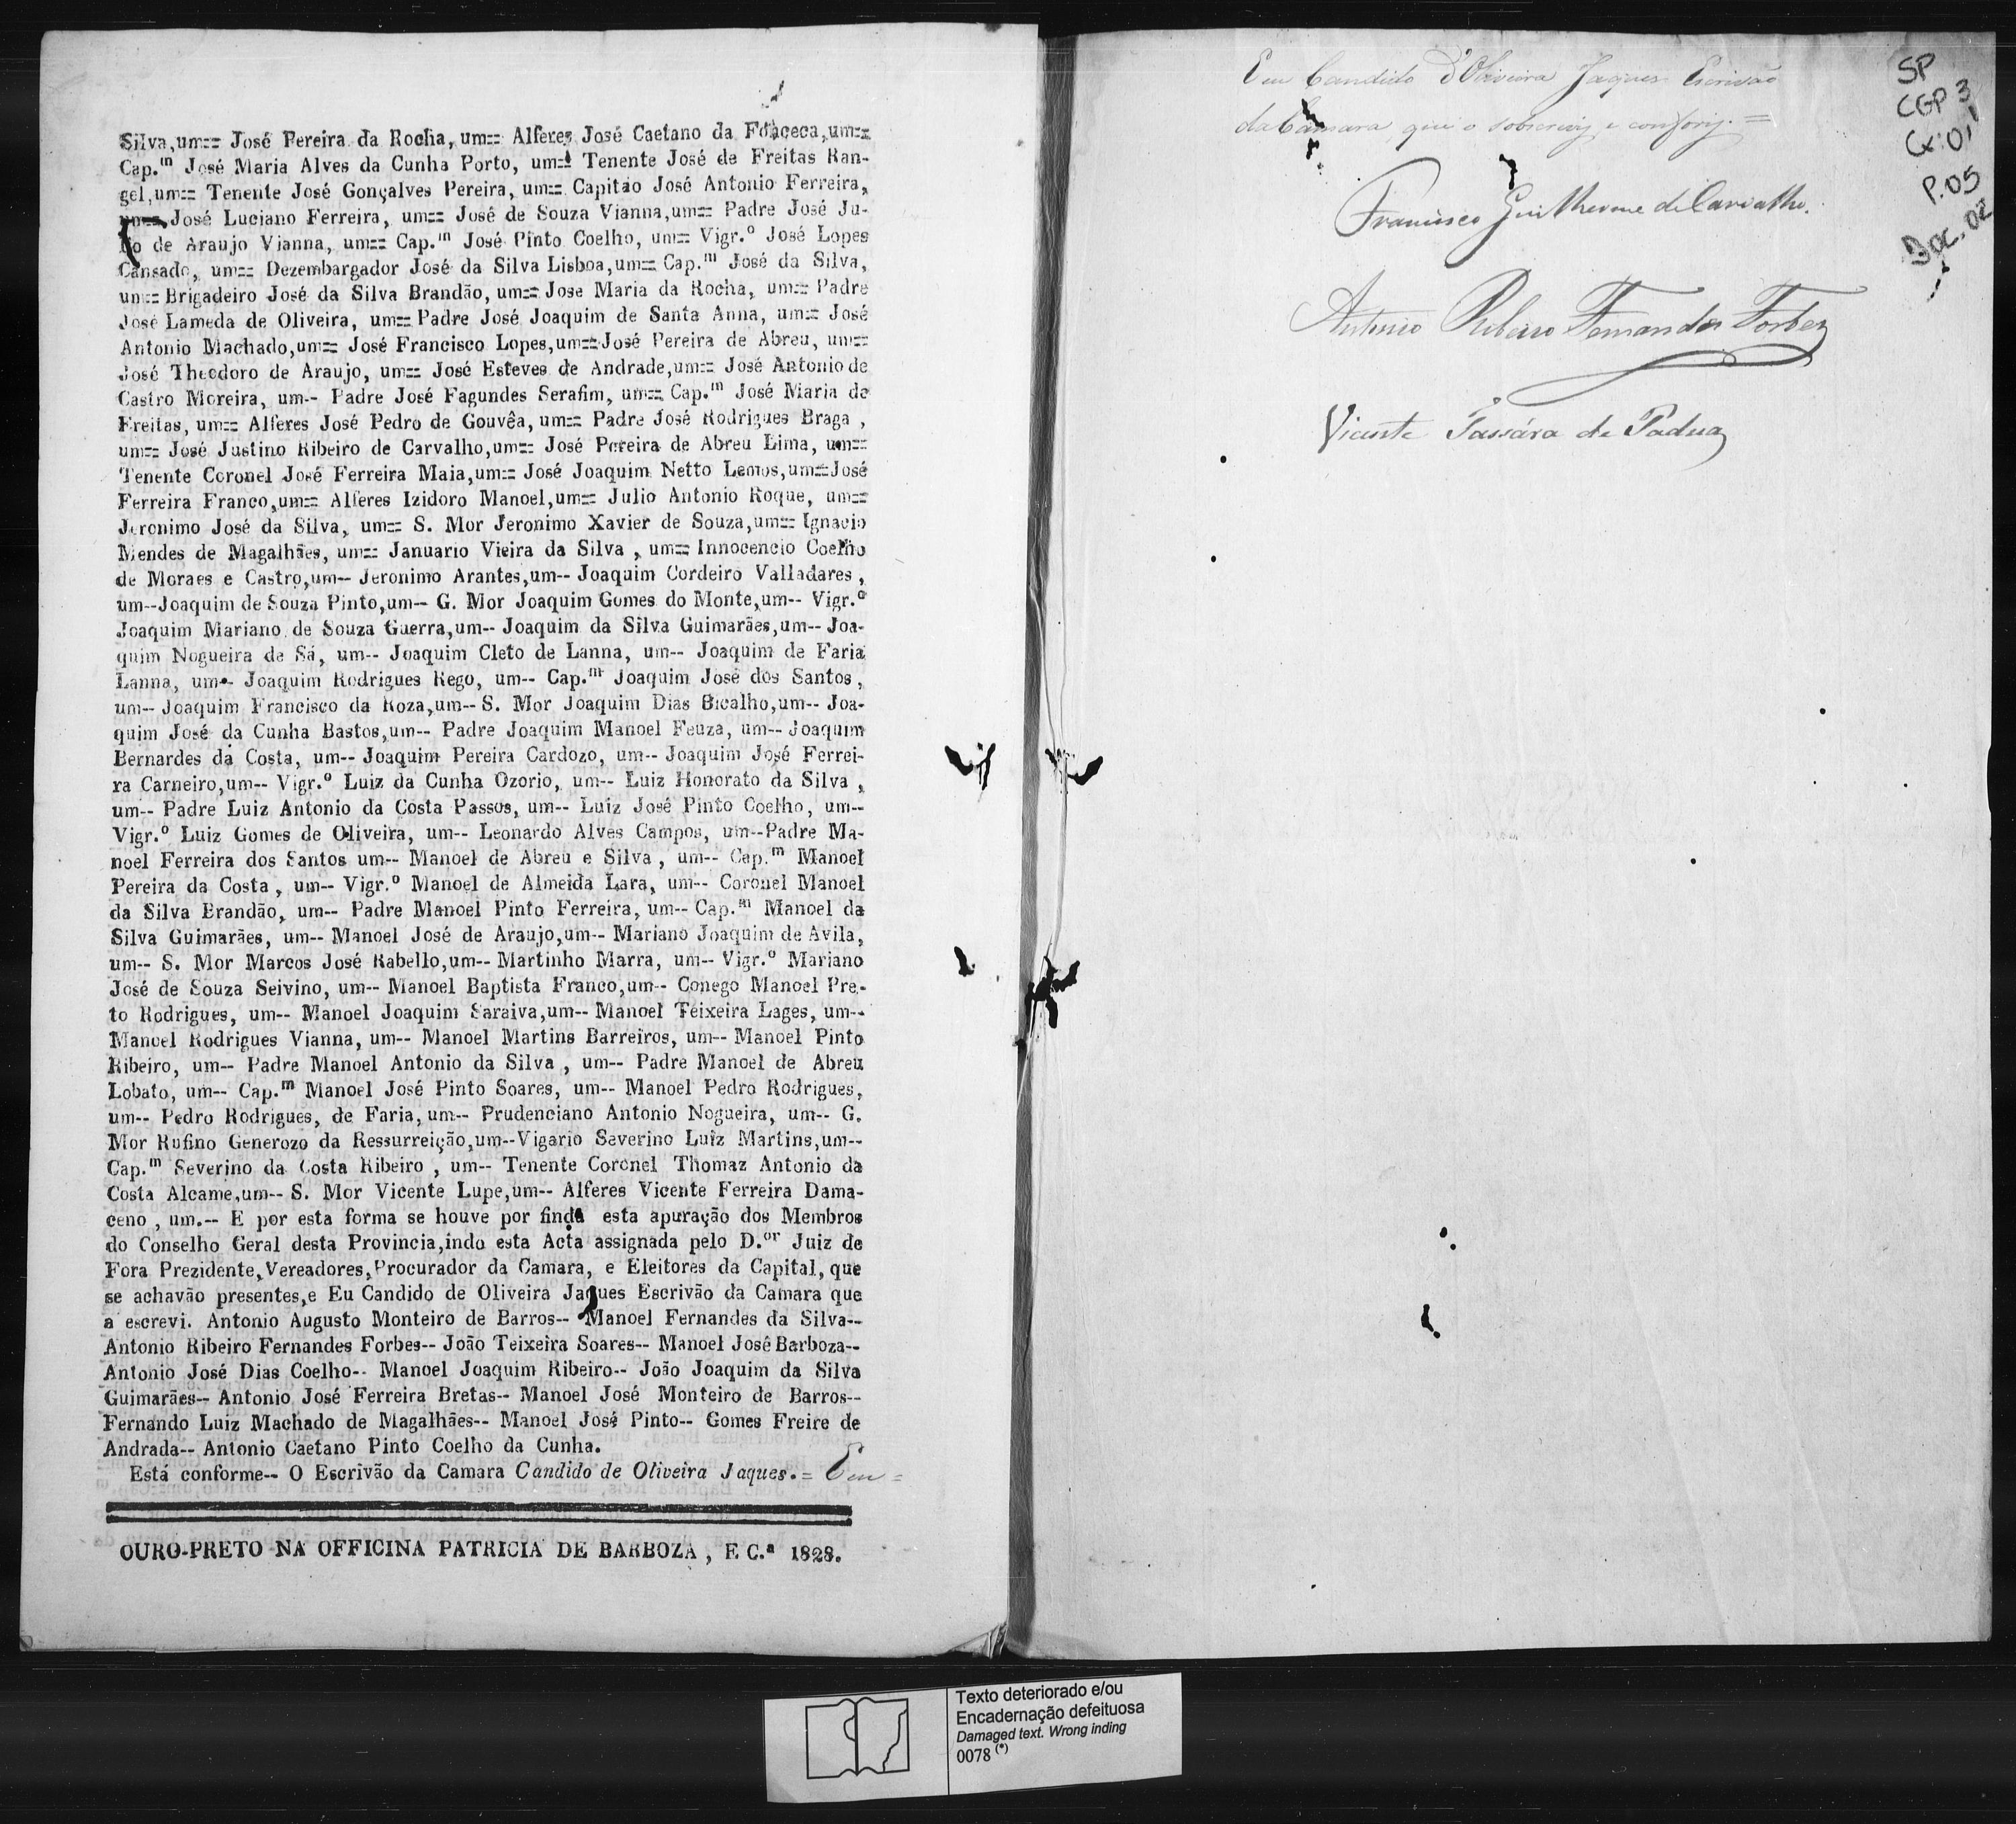 Silva,um== José Pereira da Rocha, um== Alferes José Caetano da Fonceca,um==
Cap.m José Maria Alves da Cunha Porto, um== Tenente José de Freitas Ran-
gel,um== Tenente José Gonçalves Pereira, um== Capitão José Antonio Ferreira,
um== José Luciano Ferreira, um== José de Souza Vianna,um== Padre José Ju-
de Araujo Vianna, um== Cap.m José Pinto Coelho, um== Vigr.o José Lopes
Cansado, um== Dezembargador José da Silva Lisboa,um== Cap.m José da Silva,
um== Brigadeiro José da Silva Brandão, um== Jose Maria da Rocha, um== Padre
José Lameda de Oliveira, um== Padre José Joaquim de Santa Anna, um== José
Antonio Machado,um== José Francisco Lopes,um== José Pereira de Abreu, um==
José Theodoro de Araujo, um== José Esteves de Andrade,um== José Antonio de
Castro Moreira, um-- Padre José Fagundes Serafim, um== Cap.m José Maria de
Freitas, um== Alferes José Pedro de Gouvêa, um== Padre José Rodrigues Braga ,
um== José Justino Ribeiro de Carvalho,um== José Pereira de Abreu Lima, um==
Tenente Coronel José Ferreira Maia,um== José Joaquim Netto Lemos,um== José
Ferreira Franco,um== Alferes Izidoro Manoel,um== Julio Antonio Roque, um==
Jeronimo José da Silva, um== S. Mor Jeronimo Xavier de Souza,um== Ignacio
Mendes de Magalhães, um== Januario Vieira da Silva , um== Innocencio Coelho
de Moraes e Castro,um-- Jeronimo Arantes,um-- Joaquim Cordeiro Valladares ,
um--Joaquim de Souza Pinto,um-- G. Mor Joaquim Gomes do Monte,um-- Vigr.o
Joaquim Mariano de Souza Guerra,um-- Joaquim da Silva Guimarães,um-- Joa-
quim Nogueira de Sá, um-- Joaquim Cleto de Lanna, um-- Joaquim de Faria
Lanna, um-- Joaquim Rodrigues Rego, um-- Cap.m Joaquim José dos Santos ,
um-- Joaquim Francisco da Roza,um-- S. Mor Joaquim Dias Bicalho,um-- Joa-
quim José da Cunha Bastos,um-- Padre Joaquim Manoel Feuza, um-- Joaquim
Bernardes da Costa, um-- Joaquim Pereira Cardozo, um-- Joaquim José Ferrei-
ra Carneiro,um-- Vigr.o Luiz da Cunha Ozorio, um-- Luiz Honorato da Silva ,
um-- Padre Luiz Antonio da Costa Passos, um-- Luiz José Pinto Coelho, um--
Vigr.o Luiz Gomes de Oliveira, um-- Leonardo Alves Campos, um--Padre Ma-
noel Ferreira dos Santos um-- Manoel de Abreu e Silva , um-- Cap.m Manoel
Pereira da Costa , um-- Vigr.o Manoel de Almeida Lara, um-- Coronel Manoel
da Silva Brandão, um-- Padre Manoel Pinto Ferreira, um-- Cap.m Manoel da
Silva Guimarães, um-- Manoel José de Araujo,um-- Mariano Joaquim de Avila,
um-- S. Mor Marcos José Rabello,um-- Martinho Marra, um-- Vigr.o Mariano
José de Souza Seivino, um-- Manoel Baptista Franco,um-- Conego Manoel Pre-
to Rodrigues, um-- Manoel Joaquim Saraiva,um-- Manoel Teixeira Lages, um--
Manoel Rodrigues Vianna, um-- Manoel Martins Barreiros, um-- Manoel Pinto
Ribeiro, um-- Padre Manoel Antonio da Silva , um-- Padre Manoel de Abreu
Lobato, um-- Cap.m Manoel José Pinto Soares, um-- Manoel Pedro Rodrigues,
um-- Pedro Rodrigues, de Faria, um-- Prudenciano Antonio Nogueira, um-- G.
Mor Rufino Generozo da Ressurreição,um--Vigario Severino Luiz Martins,um--
Cap.m Severino da Costa Ribeiro , um-- Tenente Coronel Thomaz Antonio da
Costa Alcame,um-- S. Mor Vicente Lupe,um-- Alferes Vicente Ferreira Dama-
ceno , um.-- E por esta forma se houve por finda esta apuração dos Membros
do Conselho Geral desta Provincia,indo esta Acta assignada pelo D.or Juiz de
Fora Prezidente,Vereadores,Procurador da Camara, e Eleitores da Capital, que
se achavão presentes,e Eu Candido de Oliveira Jaques Escrivão da Camara que
a escrevi. Antonio Augusto Monteiro de Barros-- Manoel Fernandes da Silva--
Antonio Ribeiro Fernandes Forbes-- João Teixeira Soares-- Manoel José Barboza--
Antonio José Dias Coelho-- Manoel Joaquim Ribeiro-- João Joaquim da Silva
Guimarães-- Antonio José Ferreira Bretas-- Manoel José Monteiro de Barros--
Fernando Luiz Machado de Magalhães-- Manoel José Pinto-- Gomes Freire de
Andrada-- Antonio Caetano Pinto Coelho da Cunha.
Está conforme-- O Escrivão da Camara Candido de Oliveira Jaques. = Eu =
OURO-PRETO NA OFFICINA PATRICIA DE BARBOZA , E C.a 1828.
Eu Candido d'Oliveira Jaques Escrivão
da Camara que o sobscrevy e confery. =
Francisco Guilherme de Carvalho.
Antonio Ribeiro Fernandes Forbes
Vicente Tassára de Padua
SP
CGP 3
Cx: 01
P. 05
Doc. 02
Texto deteriorado e/ou
Encadernação defeituosa
Damaged text. Wrong inding
0078 (*)